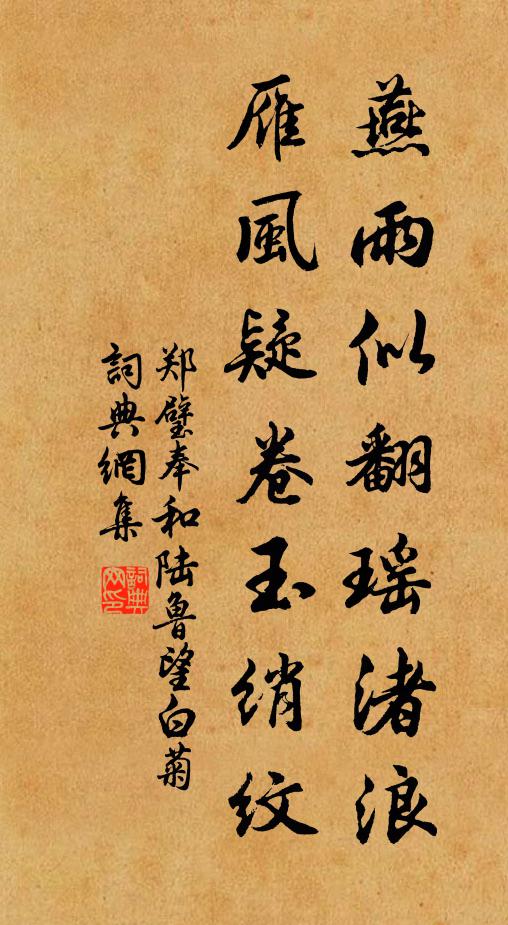 燕雨似翻瑶渚浪
雁風疑卷玉绡紋
郑璧奉和陆鲁望白菊
詞典網集
詞典网印